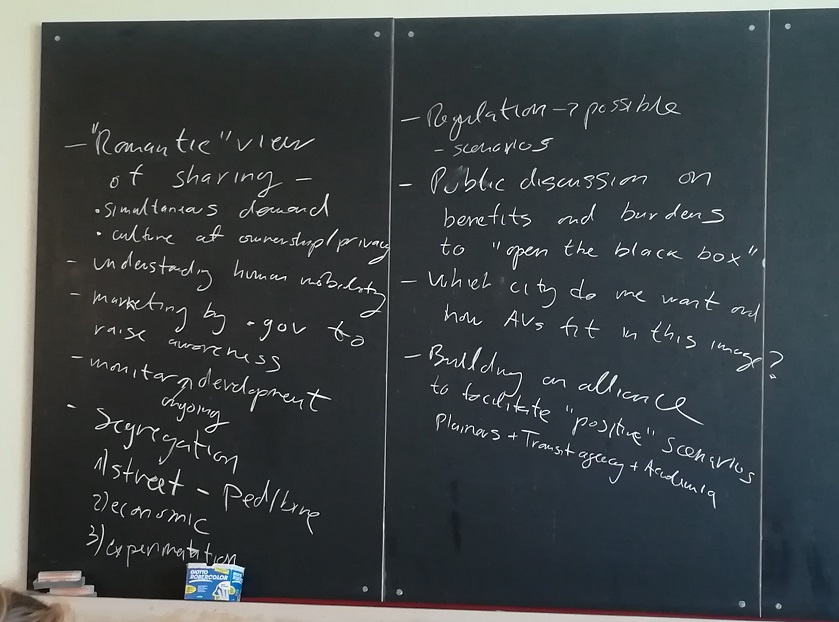 - "Romantic" view
of sharing -
• simultaneous demand
• culture of ownership/privacy
- understanding human mobility
- marketing by .gov to
raise awareness
- monitor development
ongoing
- Segregation
1) street - Ped/bike
2) economic
3) experimentation
GIOTTO
ROBERCOLOR
- Regulation -> possible
- scenarios
- Public discussion on
benefits and burdens
to "open the black box"
- Which city do we want and
how AVs fit in this image?
- Building an alliance
to facilitate "positive" scenarios
Planners + Transit agency + Academia